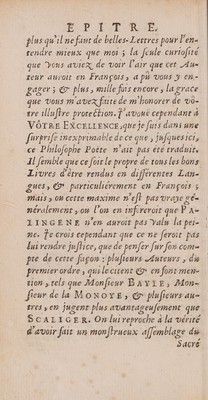 EPITRE.
plus qu'il ne faut de belles-Lettres pour l'en-
tendre mieux que moi; la seule curiosité
que Vous aviez de voir l'air que cet Au-
teur auroit en François, a pû vous y en-
gager; & plus, mille fois encore, la grace
que vous m'avez faite de m'honorer de vô-
tre illustre protection. J'avouë cependant à
VÔTRE EXCELLENCE, que je suis dans une
surprise inexprimable de ce que, jusques ici,
ce Philosophe Poëte n'ait pas été traduit.
Il semble que ce soit le propre de tous les bons
Livres d'être rendus en différentes Lan-
gues, & particuliérement en François;
mais, ou cette maxime n'est pas vraye gé-
néralement, ou l'on en inféreroit que PA-
LINGENE n'en auroit pas valu la pei-
ne. Je crois cependant que ce ne seroit pas
lui rendre justice, que de penser sur son com-
pte de cette façon: plusieurs Auteurs, du
premier ordre, qui le citent & en font men-
tion, tels que Monsieur BAYLE, Mon-
sieur de la MONOYE, & plusieurs au-
tres, en jugent plus avantageusement que
SCALIGER. On lui reproche à la vérité
d'avoir fait un monstrueux assemblage du
Sacré